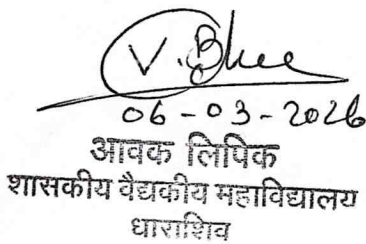 V. Bhee
06-03-2026
आवक लिपिक
शासकीय वैद्यकीय महाविद्यालय
धाराशिव